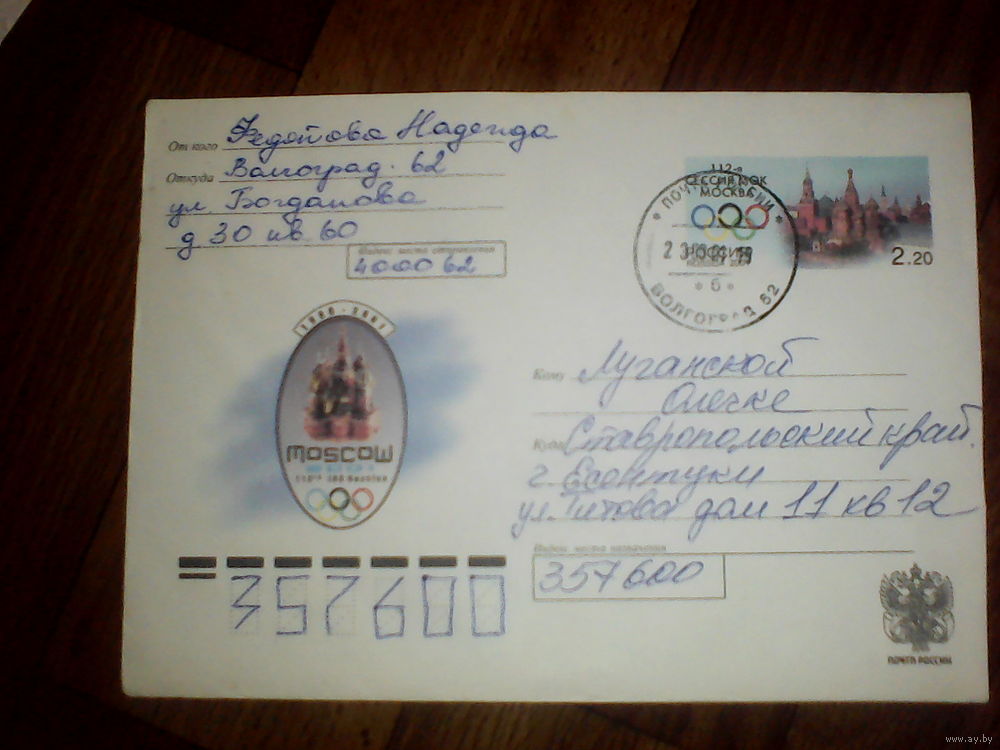 От кого Федотова Надежда
Откуда Волгоград 62
ул Богданова
д 30 кв 60
Индекс места отправления
400062
112-я
СЕССИЯ МОК
МОСКВА
РОССИЯ
2.20
ПОЧТА РОССИИ
б
ВОЛГОГРАД 62
1980 - 2001
MOSCOW
112th IOC Session
Кому Луганской
Олечке
Куда Ставропольский край.
г. Есентуки
ул. Титова дом 11 кв 12
Индекс места назначения
357600
357600
ПОЧТА РОССИИ
www.ay.by